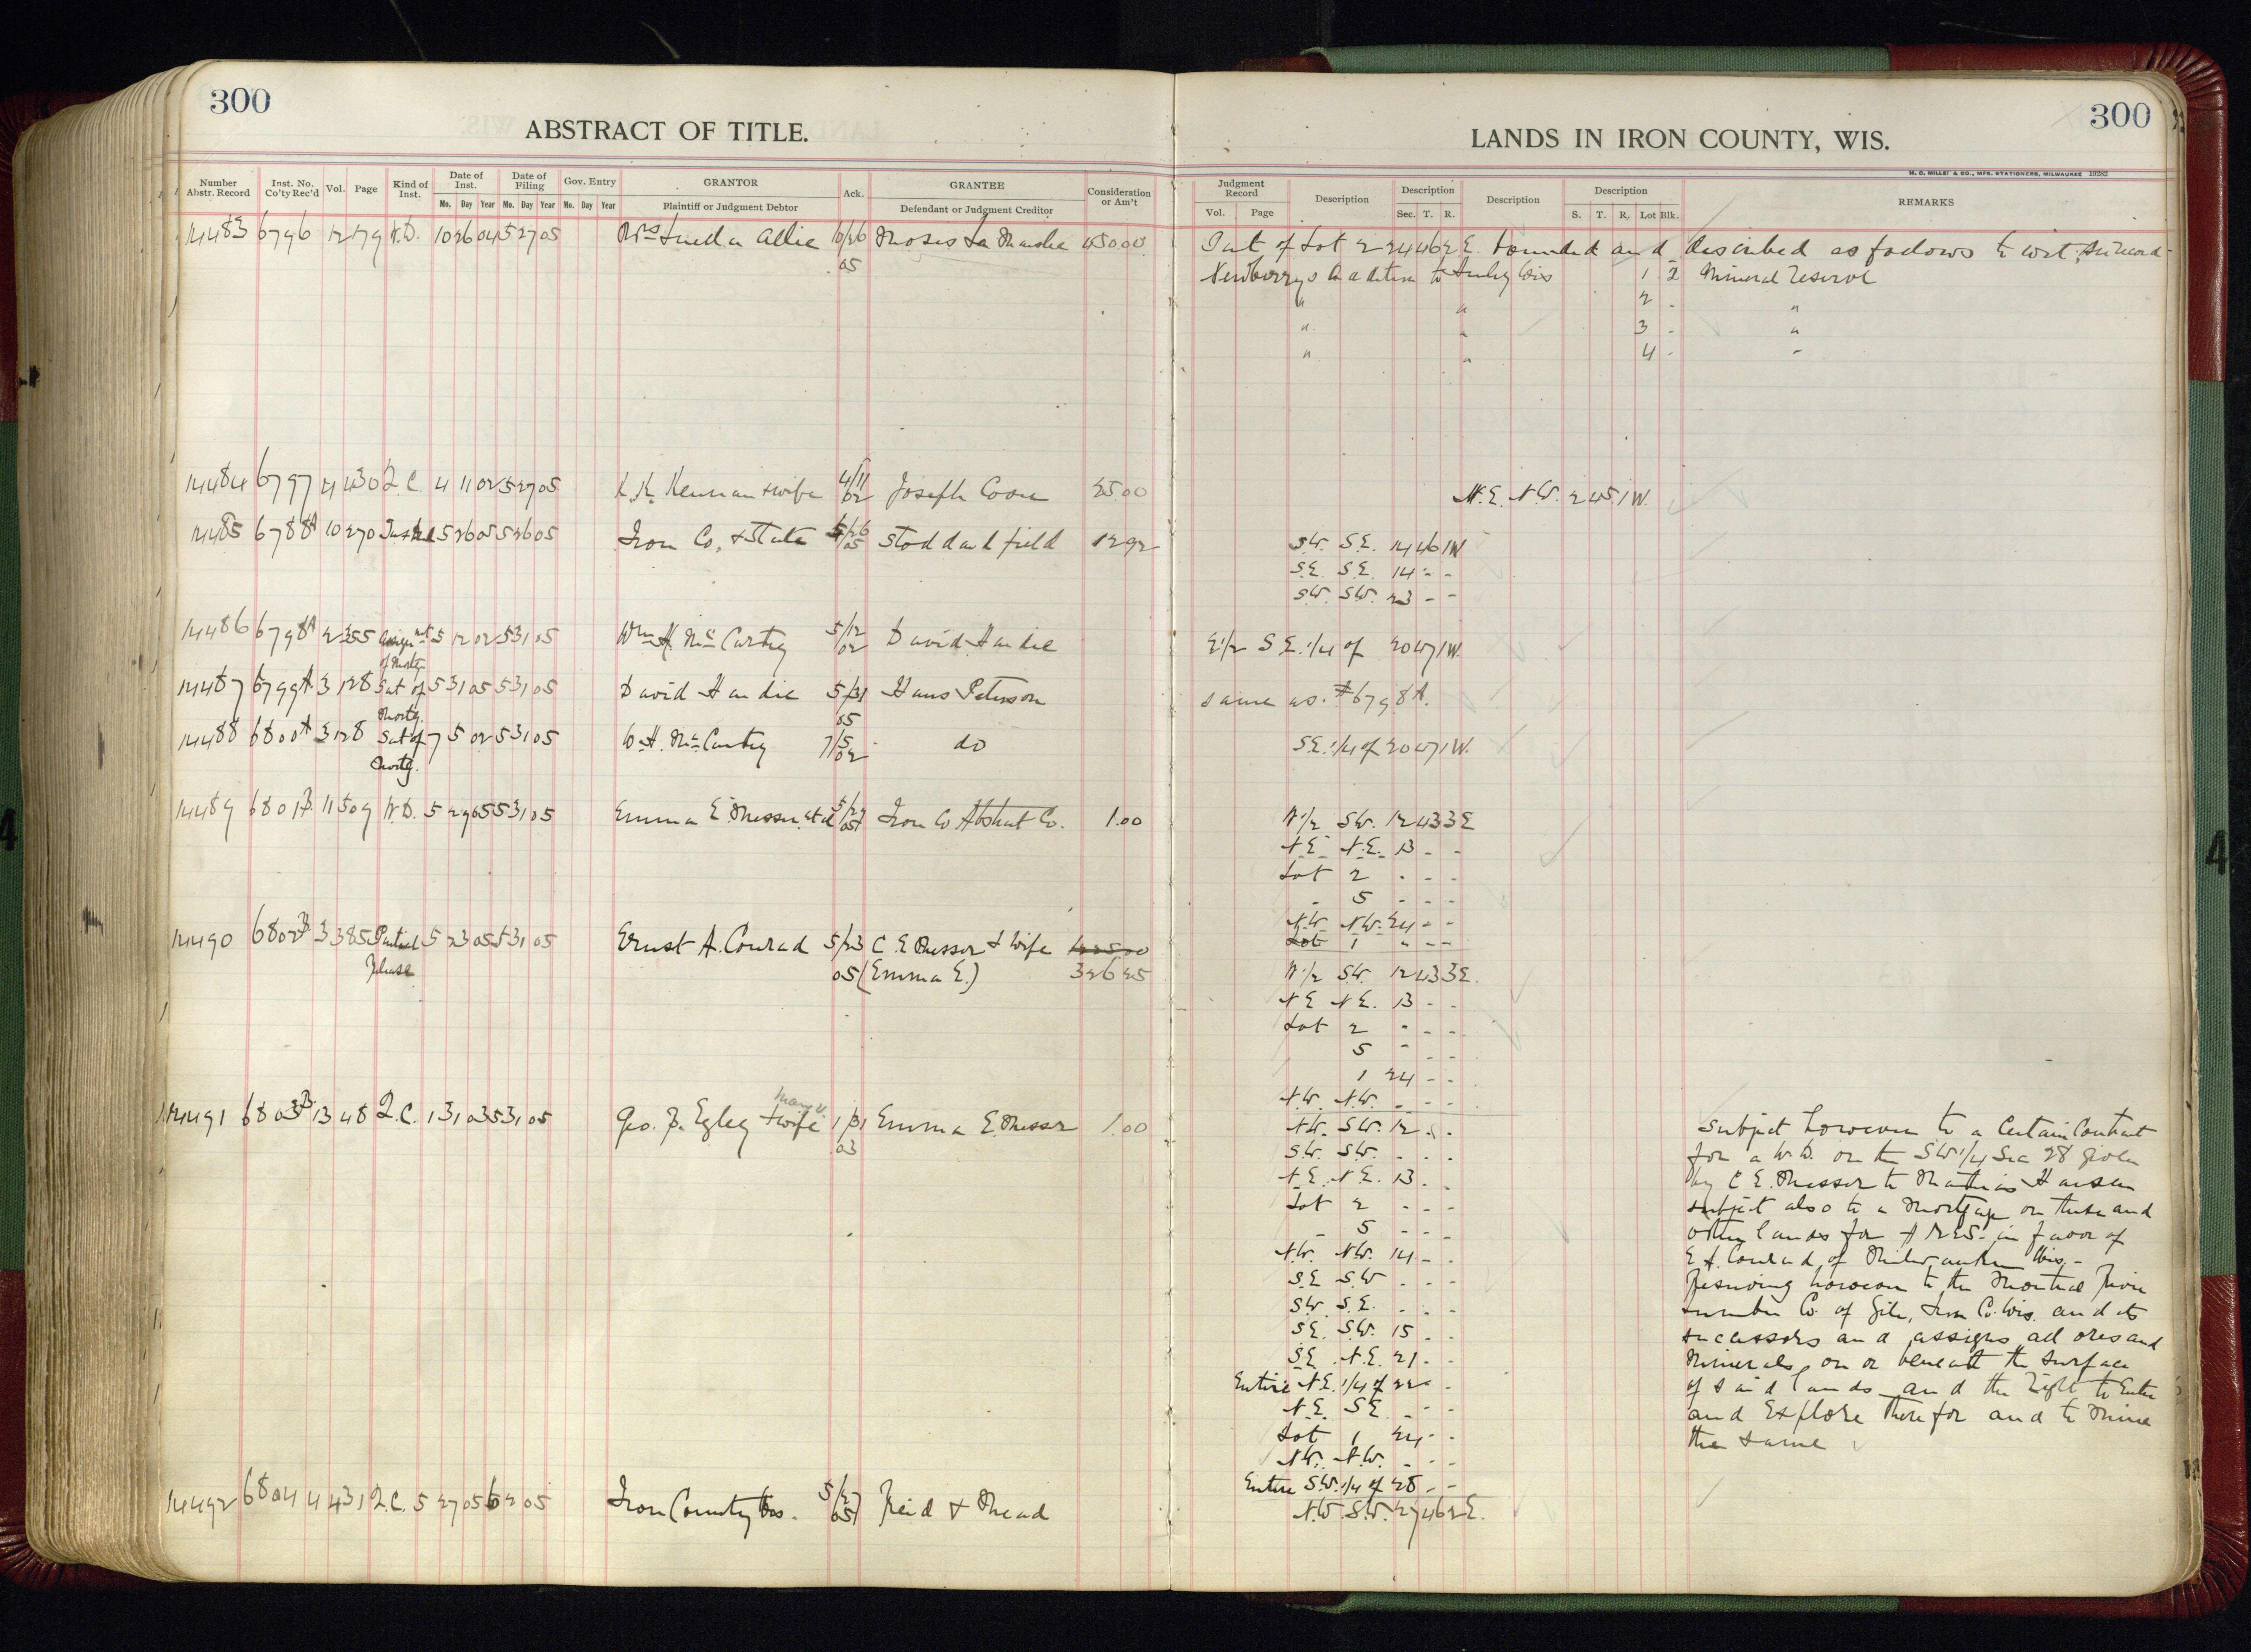 300
ABSTRACT OF TITLE.
Number Abstr. Record | Inst. No. Co'ty Rec'd | Vol. | Page | Kind of Inst. | Date of Inst. Mo. Day Year | Date of Filing Mo. Day Year | Gov. Entry Mo. Day Year | GRANTOR Plaintiff or Judgment Debtor | Ack. | GRANTEE Defendant or Judgment Creditor | Consideration or Am't
14483 6796 12 179 W.D. 10 26 04 5 27 05 Mrs Allie 10/26 Moses La 450.00
05
14484 6797 4 430 Q.C. 4 11 02 5 27 05 K.K. Kennan + wife 4/11 02 Joseph Coon 25.00
14485 6788A 10 270 5 26 05 5 26 05 Iron Co, + State 5/26 05 Stoddard field 1292
14486 6798A 2 355 Assign mt 5 12 02 5 31 05 Wm H. Mc Carthy 5/12 02 David Hardie
of Mortg.
14487 6799A 3 128 Sat of 5 31 05 5 31 05 David Hardie 5/31 Hans Peterson
Mortg. 05
14488 6800A 3 128 Sat of 7 5 02 5 31 05 W.H. Mc Carthy 7/5 02 do
Mortg.
14489 6801B 11 509 W.D. 5 29 05 5 31 05 Emma E Messer et al 5/29 05 Iron Co Abstract Co. 1.00
14490 6802B 3 385 Partial 5 23 05 5 31 05 Ernst A. Conrad 5/23 C. E Messer + Wife
Release 05 (Emma E.) 326 25
Mary V.
14491 6803B 13 48 Q.C. 1 31 03 5 31 05 Geo. B. Egley + wife 1/31 Emma E. Messer 1.00
03
14492 6804 4 431 Q.C. 5 27 05 6 2 05 Iron County Wis. 5/27 05 Reid + Mead
300
LANDS IN IRON COUNTY, WIS.
H. C. MILLER & CO., MFG. STATIONERS, MILWAUKEE 19282
Judgment Record Vol. Page | Description | Description Sec. T. R. | Description | Description S. T. R. Lot Blk. | REMARKS
Part of Lot 2 24 46 2 E. bounded and described as follows to wit:
Newberrys Addition to Hurley Wis 1 2 Mineral reserve
" " 2 - "
" " 3 - "
" " 4 - "
N.E. N.W. 2 45 1 W.
S.W. S.E. 14 46 1 W
S.E. S.E. 14 - -
S.W. S.W. 23 - -
E 1/2 S.E. 1/4 of 20 47 1 W.
same as. #6798A.
S.E. 1/4 of 20 47 1 W.
W 1/2 S.W. 12 43 3 E
N.E. N.E. 13 - -
Lot 2 - - -
- 5 - - -
N.W. N.W. 24 - -
Lot 1 " - -
W 1/2 S.W. 12 43 3 E.
N.E. N.E. 13 - -
Lot 2 " - -
5 " - -
1 24 - -
N.W. N.W. - - -
N.W. S.W. 12 - -
S.W. S.W. - - -
N.E. N.E. 13 - -
Lot 2 - - -
- 5 - - -
N.W. N.W. 14 - -
S.E. S.W - - -
S.W. S.E. - - -
S.E. S.W. 15 - -
S.E. N.E. 21 - -
Entire N.E. 1/4 of 22 - -
N.E. S.E. - - -
Lot 1 24 - -
N.W. N.W. - - -
Entire S.W. 1/4 of 28 - -
N.W. S.W. 27 46 2 E.
Subject however to a Certain Contract
for a W.D. on the SW 1/4 Sec 28 given
by C E. Messer to Mathias Hansen
subject also to a Mortgage on these and
other lands for in favor of
E A. Conrad, of Milwaukee Wis. -
Reserving however to the Montreal River
Lumber Co. of Gile, Iron Co. Wis. and its
successors and assigns all ores and
Minerals, on or beneath the surface
of said lands and the right to Enter
and Explore therefor and to Mine
the same